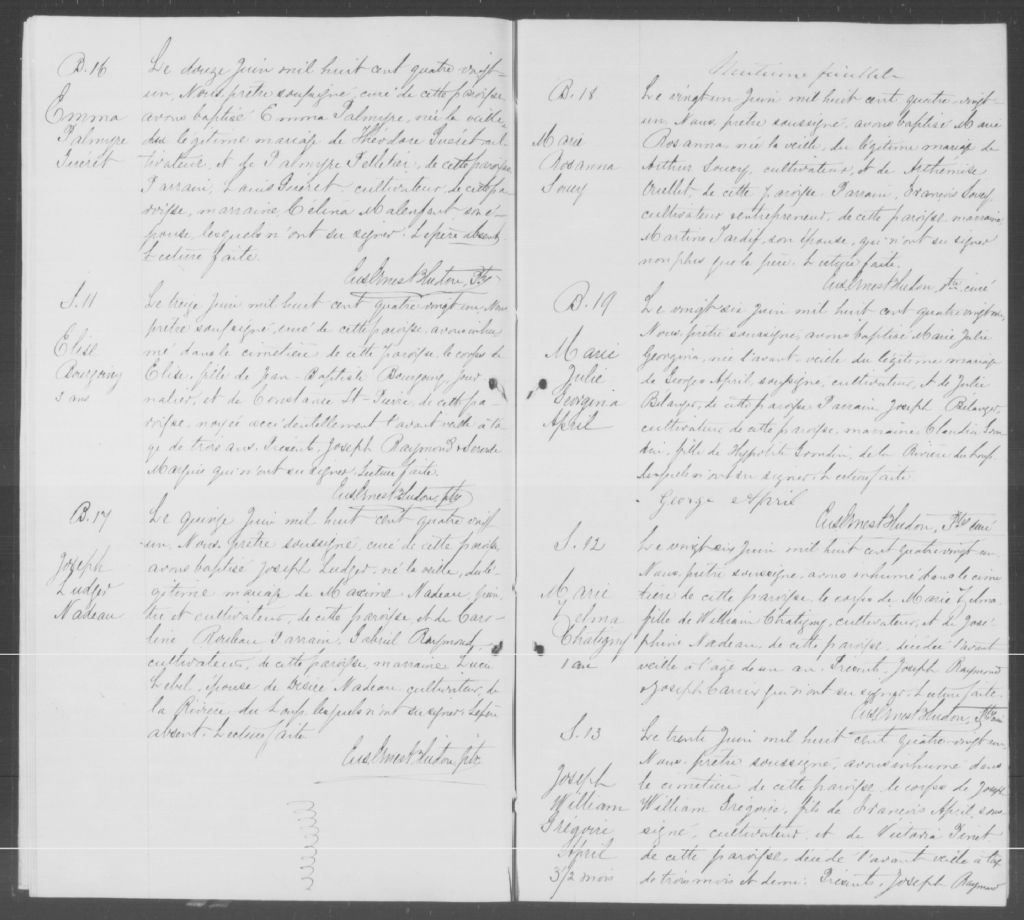 B. 16
Emma
Palmyre
Gueret
Le douze Juin mil huit cent quatre vingt-
un, Nous, prêtre soussigné, curé de cette paroisse,
avons baptisé Emma Palmyre, née la veille,
du légitime mariage de Théodore Guéret cul-
tivateur, et de Palmyre Pelletier, de cette paroisse.
Parrain, Louis Guéret cultivateur, de cette pa-
roisse, marraine, Célina Malenfant son é-
pouse, lesquels n'ont su signer. Le père absent.
Lecture faite.
Eus. Ernest Hudon, Ptre
S. 11
Elise
Bourgoing
3 ans
Le treize Juin mil huit cent quatre vingt un, Nous
prêtre soussigné, curé de cette paroisse, avons inhu-
mé dans le cimetière de cette paroisse le corps de
Elise, fille de Jean-Baptiste Bourgoing, jour-
nalier, et de Constance St-Pierre, de cette pa-
roisse, noyée accidentellement l'avant veille à l'â-
ge de trois ans. Présents, Joseph Raymond &
Marquis qui n'ont su signer. Lecture faite.
Eus. Ernest Hudon, ptre
B. 17
Joseph
Ludger
Nadeau
Le quinze Juin mil huit cent quatre vingt
un, Nous, prêtre soussigné, curé de cette paroisse,
avons baptisé Joseph Ludger, né la veille, du lé-
gitime mariage de Maxime Nadeau,
et cultivateur, de cette paroisse et de Caro-
line Rouleau. Parrain, Gabriel Raymond,
cultivateur, de cette paroisse, marraine Luce
Lebel, épouse de Désiré Nadeau cultivateur, de
la Rivière du Loup, lesquels n'ont su signer. Le père
absent. Lecture faite
Eus. Ernest Hudon, ptr.
feuillet
B. 18
Marie
Rosanna
Soucy
Le vingt un Juin mil huit cent quatre-vingt-
un, Nous, prêtre soussigné, avons baptisé Marie
Rosanna née la veille, du légitime mariage de
Arthur Soucy, cultivateur, et de Arthémise
Ouellet, de cette paroisse. Parrain, François Soucy
cultivateur & entrepreneur, de cette paroisse, marraine,
Martine Tardif, son épouse, qui n'ont su signer
non plus que le père. Lecture faite.
Eus. Ernest Hudon, Ptre curé
B. 19
Marie
Julie
Georgina
April
Le vingt six Juin mil huit cent quatre vingt un,
Nous, prêtre soussigné, avons baptisé Marie Julie
Georgina, née l'avant-veille du légitime mariage
de Georges April, soussigné, cultivateur, et de Julie
Bélanger, de cette paroisse. Parrain Joseph Bélanger,
cultivateur de cette paroisse, marraine Claudia
fille de Hippolyte de la Rivière du Loup
lesquels n'ont su signer. Lecture faite.
George April
Eus. Ernest Hudon, Ptre curé
S. 12
Marie
Zelma
Chatigny
1 an
Le vingt six Juin mil huit cent quatre vingt un
Nous, prêtre soussigné, avons inhumé dans le cime-
tière de cette paroisse, le corps de Marie Zelma
fille de William Chatigny, cultivateur, et de José-
phine Nadeau, de cette paroisse, décédée l'avant
veille à l'âge de un an. Présents, Joseph Raymond
& Joseph Carrier qui n'ont su signer. Lecture faite.
Eus. Ernest Hudon, Ptre curé
S. 13
Joseph
William
Grégoire
April
3 1/2 mois
Le trente Juin mil huit cent quatre-vingt un,
Nous, prêtre soussigné, avons inhumé dans
le cimetière de cette paroisse, le corps de Joseph
William Grégoire, fils de François April, sous-
signé, cultivateur et de Victoria
de cette paroisse, décédé l'avant veille à l'âge
de trois mois et demi. Présents, Joseph Raymond